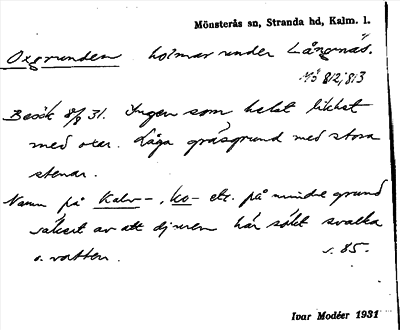 Mönsterås sn, Stranda hd, Kalm. l.
Oxgrunden holmar under Långnäs.
Mö 812, 813
Besök 8/8 31. Ingen som helst likhet
med oxar. Låga gräsgrund med stora
stenar.
Namn på Kalv-, Ko- etc. på mindre grund
säkert av att djuren här sökt svalka
o. vatten. s. 85.
Ivar Modéer 1931